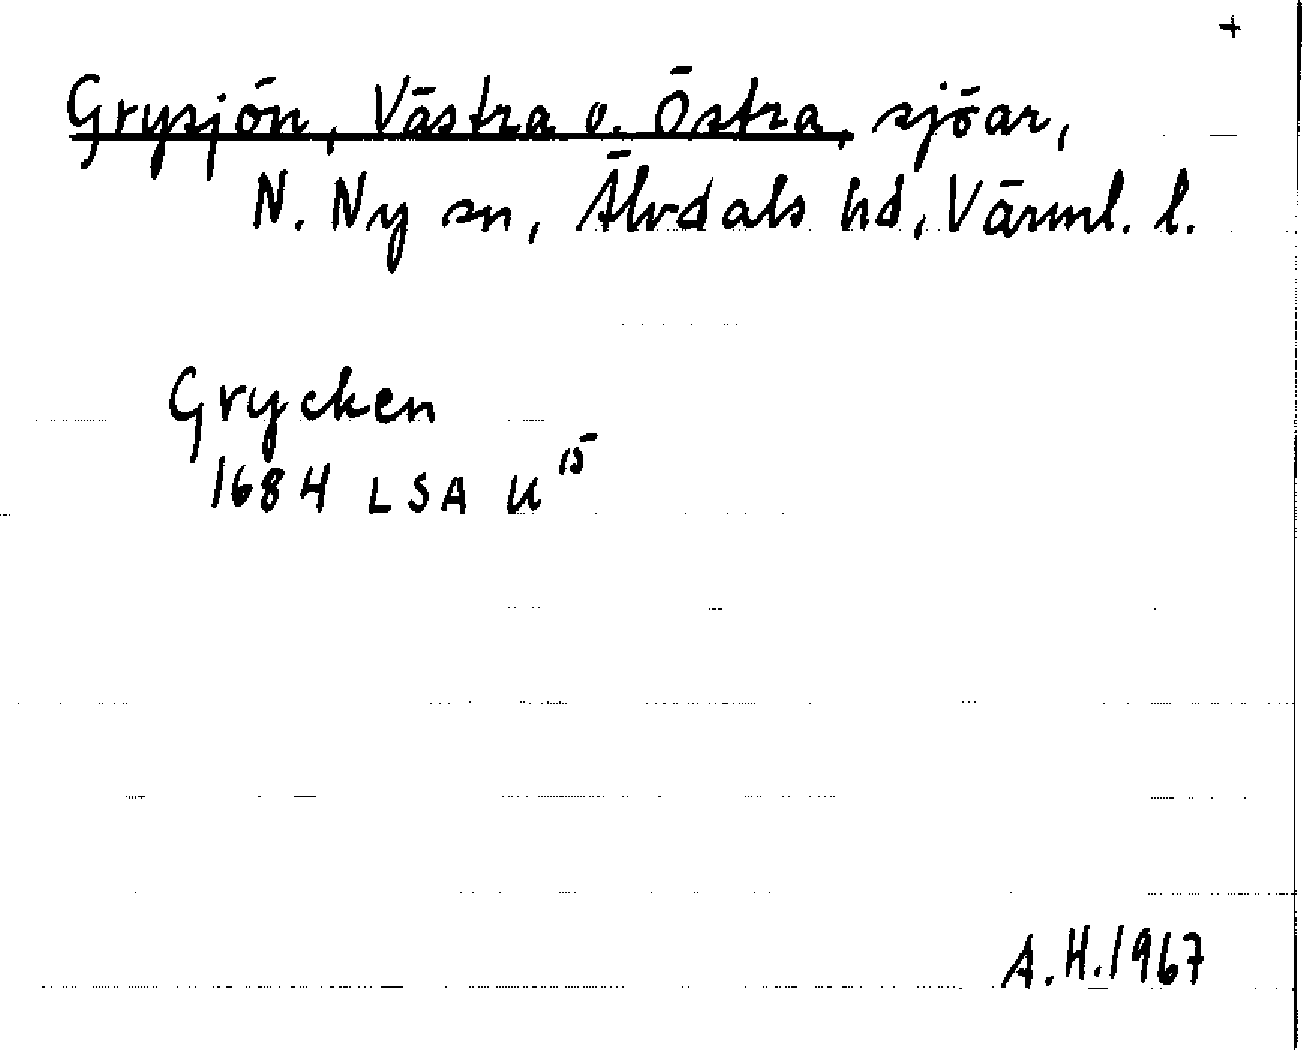 +
Grysjön, Västra o. Östra, sjöar,
N. Ny sn, Älvdals hd, Värml. l.
Grycken
1684 LSA U¹⁵
A.H. 1967